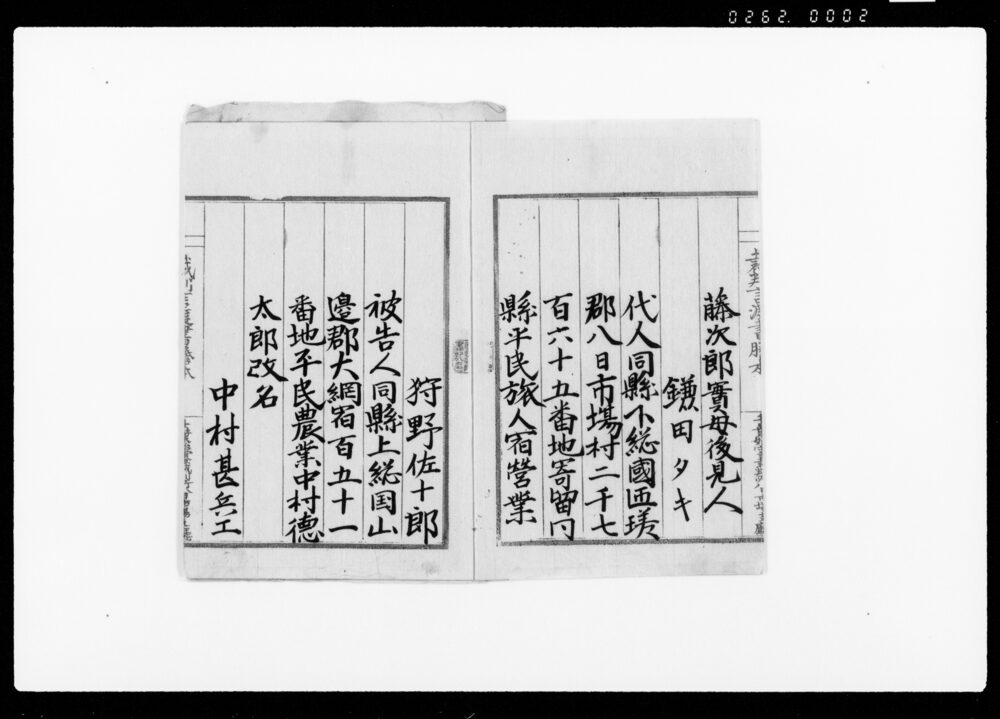 0262. 0002
藤次郎實母後見人
鎌田タキ
代人同縣下総國匝瑳
郡八日市場村二千七
百六十五番地寄留同
縣平民旅人宿営業
狩野佐十郎
被告人同縣上総国山
邉郡大網宿百五十一
番地平民農業中村徳
太郎改名
中村甚兵工